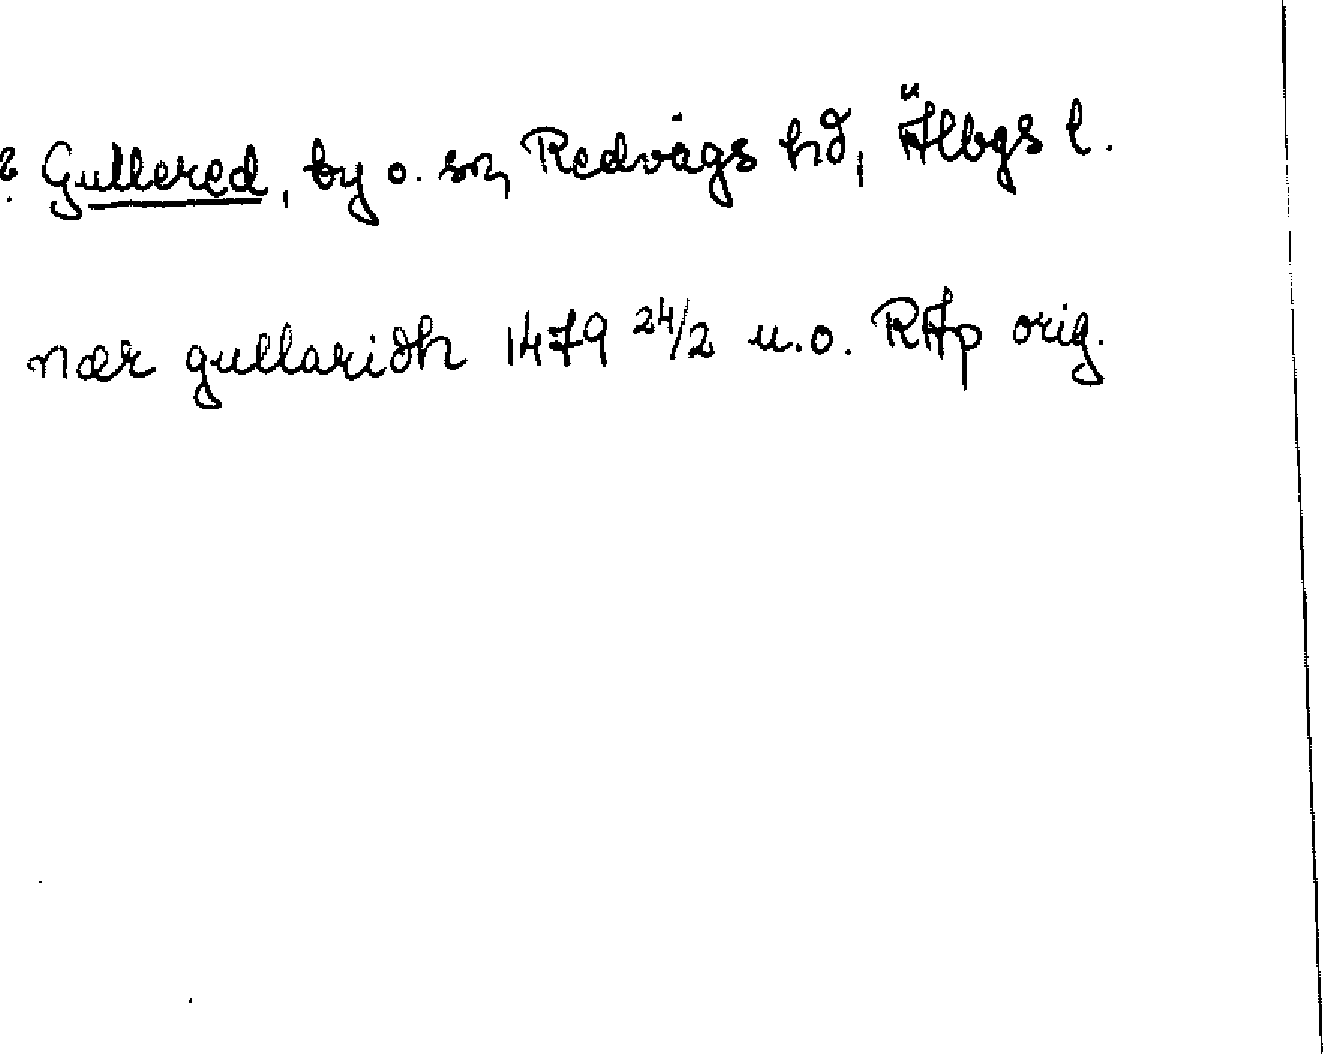 ? Gullered, by o. sn, Redvägs hd, Älbgs l.
nær gullaridh 1479 24/2 u.o. RAp orig.